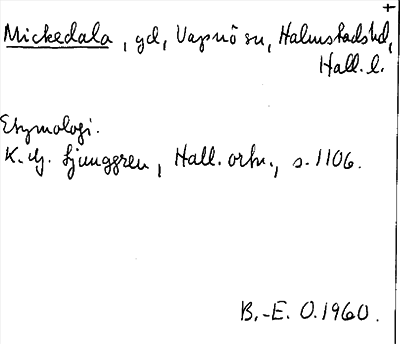 +
Mickedala, gd, Vapnö sn, Halmstads hd,
Hall. l.
Etymologi.
K. G. Ljunggren, Hall. ortn., s. 1106.
B.-E. O. 1960.